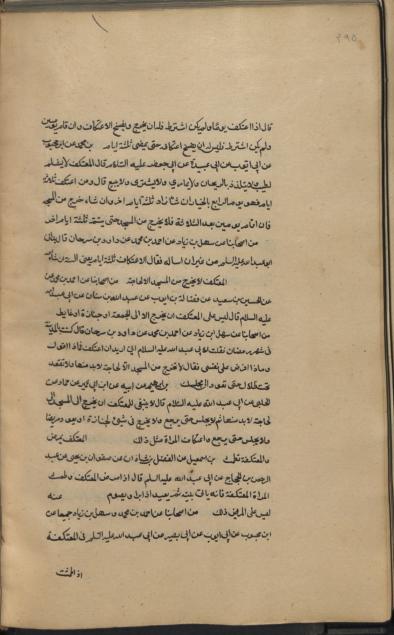 ٢٩٥
قال اذا اعتكف يوما ولم يكن اشترط فله ان يخرج ويفسخ الاعتكاف وان قام يومين
ولم يكن اشترط فليس له ان يفسخ اعتكافه حتى يمضى ثلثة ايام بن محمد عن ابن محبوب
عن ابى ايوب عن ابى عبيدة عن ابى جعفر عليه السلام قال المعتكف لا يشم
الطيب ولا يتلذذ بالريحان ولا يمارى ولا يشترى ولا يبيع قال ومن اعتكف ثلثة
ايام فهو يوم الرابع بالخيار ان شاء زاد ثلثة ايام اخر وان شاء خرج من المسجد
فان اقام يومين بعد الثلاثة فلا يخرج من المسجد حتى يتم ثلثة ايام اخر
من اصحابنا عن سهل بن زياد عن احمد بن محمد عن داود بن سرحان قال
ابو عبد الله عليه السلام من غير ان اساله فقال الاعتكاف ثلثة ايام يعنى السنة ان شاء
المعتكف لا يخرج من المسجد الا لحاجة من اصحابنا عن احمد بن محمد عن
الحسين بن سعيد عن فضالة بن ايوب عن عبد الله بن سنان عن ابى عبد الله
عليه السلام قال ليس على المعتكف ان يخرج الا الى الجمعة او جنازة او غايط
من اصحابنا عن سهل بن زياد عن احمد بن محمد عن داود بن سرحان قال كنت بالمدينة
فى شهر رمضان فقلت لابى عبد الله عليه السلام انى اريد ان اعتكف فماذا اقول
وماذا افرض على نفسى فقال لا تخرج من المسجد الا لحاجة لابد منها ولا تقعد
تحت ظلال حتى تعود الى مجلسك بن ابرهيم عن ابيه عن ابن ابى عمير عن حماد عن
الحلبى عن ابى عبد الله عليه السلام قال لا ينبغى للمعتكف ان يخرج الى المسجد الا
لحاجة لابد منها ثم لا يجلس حتى يرجع ولا يخرج فى شىء الا لجنازة او يعود مريضا
ولا يجلس حتى يرجع واعتكاف المراة مثل ذلك المعتكف يمرض
والمعتكفة تطمث بن اسمعيل عن الفضل بن شاذان عن صفوان بن يحيى عن عبد
الرحمن بن الحجاج عن ابى عبد الله عليه السلم قال اذا مرض المعتكف وطمثت
المراة المعتكفة فانه ياتى بيته ثم يعيد اذا برا ويصوم عنه
ليس على المريض ذلك من اصحابنا عن احمد بن محمد وسهل بن زياد جميعا عن
ابن محبوب عن ابى ايوب عن ابى بصير عن ابى عبد الله عليه السلم فى المعتكفة
اذا طمثت